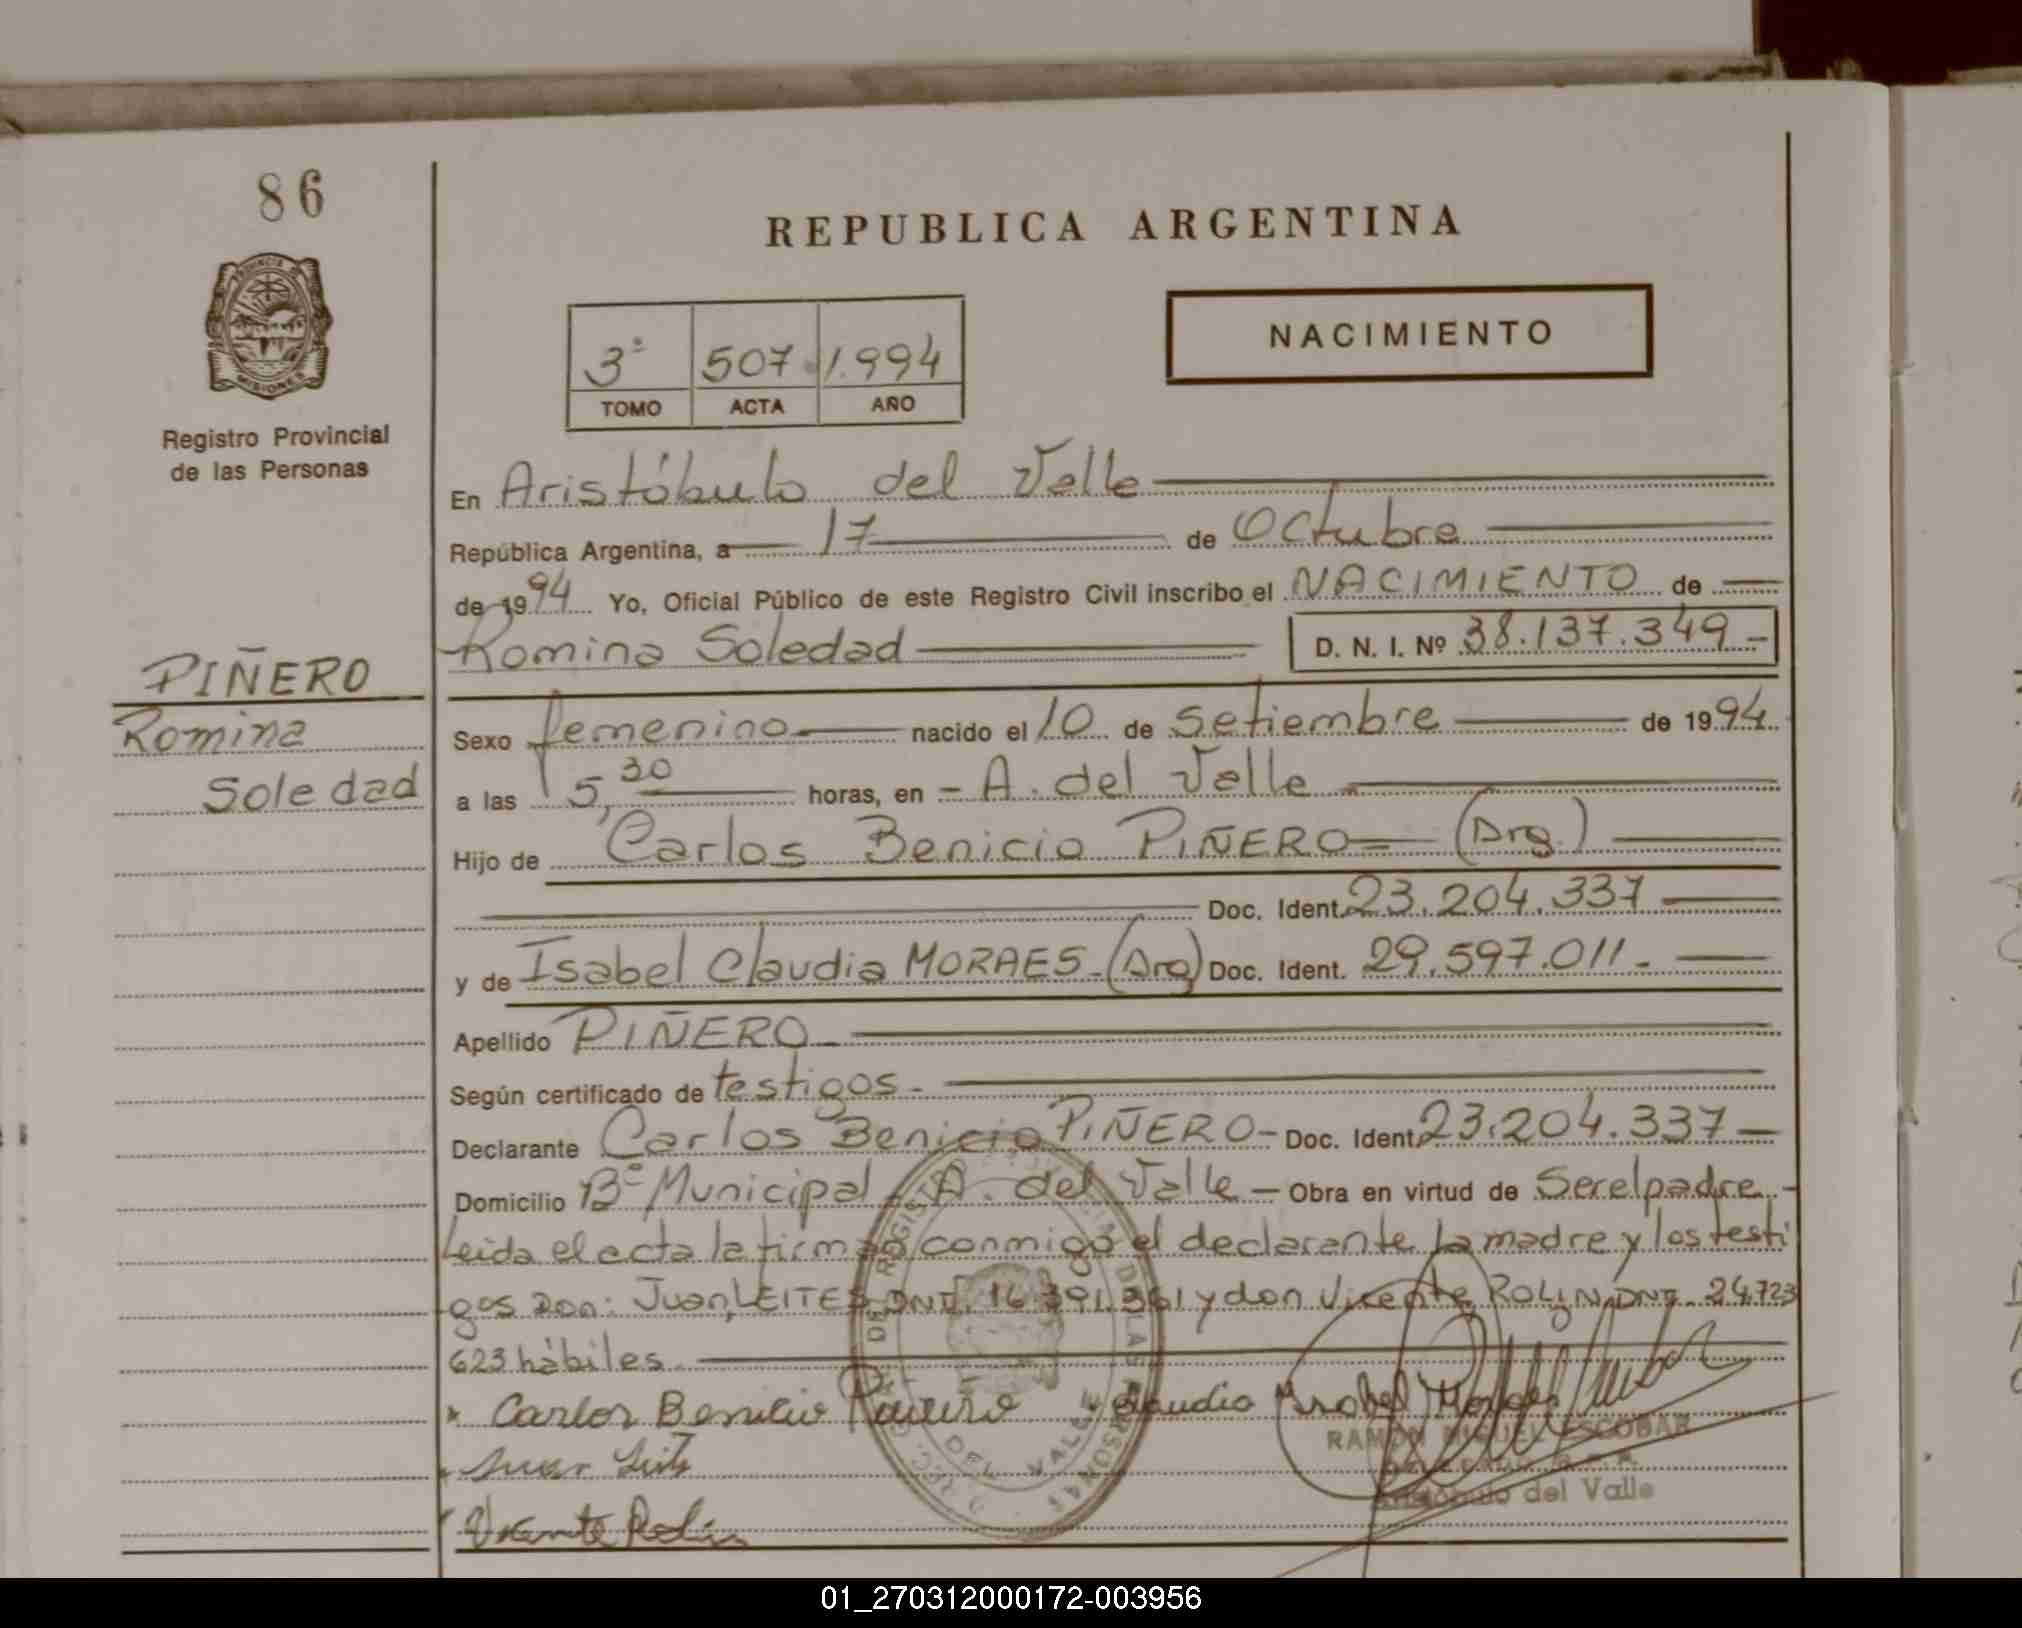 86
REPUBLICA ARGENTINA
PROVINCIA DE
MISIONES
Registro Provincial
de las Personas
3º 507 1.994
TOMO ACTA AÑO
NACIMIENTO
En Aristóbulo del Valle
República Argentina, a 17 de Octubre
de 1994 Yo, Oficial Público de este Registro Civil inscribo el NACIMIENTO de
Romina Soledad D. N. I. Nº 38.137.349.-
PIÑERO
Romina
Soledad
Sexo femenino nacido el 10 de Setiembre de 1994
a las 5,30 horas, en - A. del Valle
Hijo de Carlos Benicio PIÑERO (Arg.)
Doc. Ident. 23.204.337
y de Isabel Claudia MORAES.(Arg) Doc. Ident. 29.597.011.-
Apellido PIÑERO.
Según certificado de testigos.
Declarante Carlos Benicio PIÑERO- Doc. Ident. 23.204.337-
Domicilio Bº Municipal - A. del Valle - Obra en virtud de Serelpadre.-
Leida el acta la firman conmigo el declarante la madre y los testi
gos Don: Juan LEITES DNI. 16.391.361 y don Vicente ROLIN DNI. 24.723
623 hábiles
Carlos Benicio Piñero Claudia Isabel Moraes
RAMON MIGUEL ESCOBAR
Juan
Aristóbulo del Valle
Vicente Rolin
DEL VALLE
01_270312000172-003956